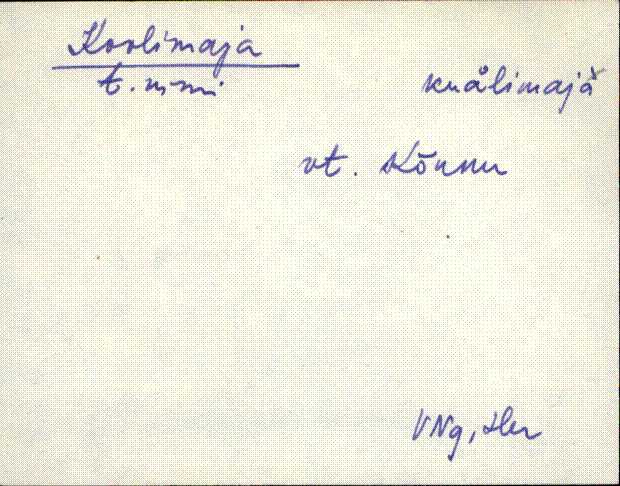 Koolimaja
t. mmi kuålimajà
vt. Kõnnu
VNg,